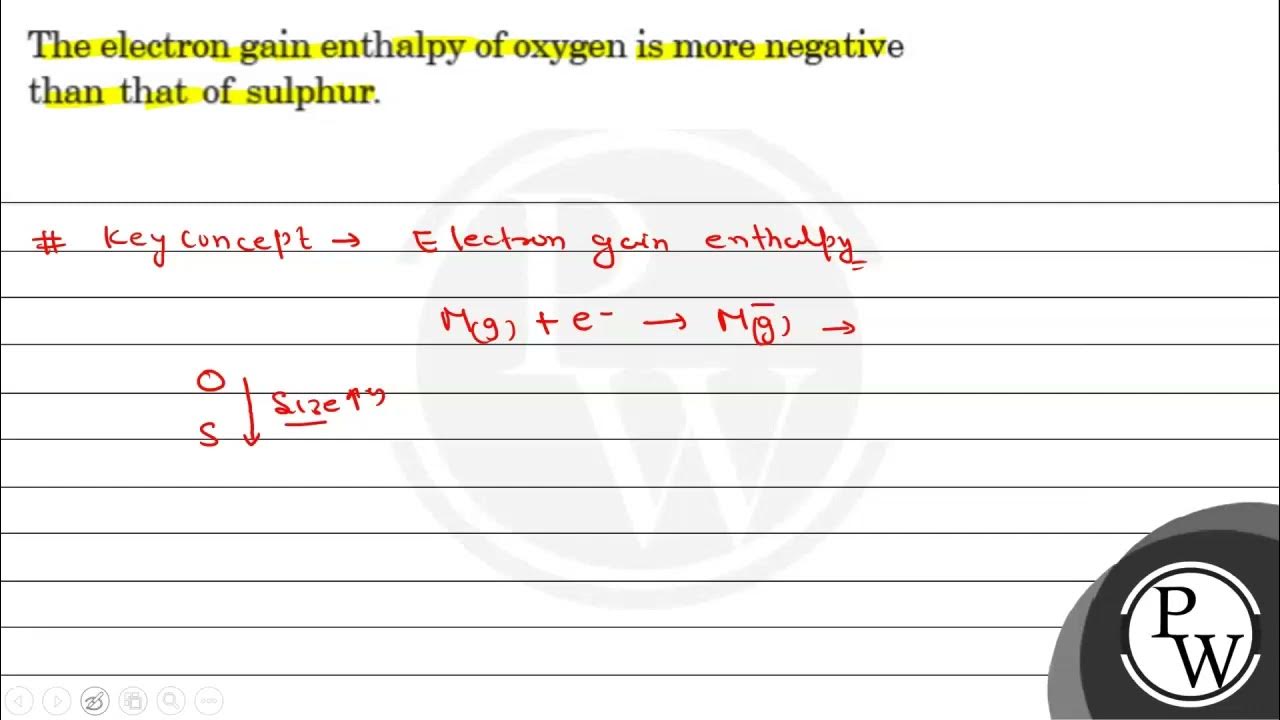 The electron gain enthalpy of oxygen is more negative
than that of sulphur.
# Key concept → Electron gain enthalpy
M(g) + e⁻ → M⁻(g) →
O
S
Size ↑
P
W
P
W